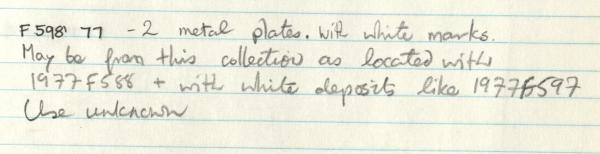 F598' 77 - 2 metal plates. With white marks.
May be from this collection as located with
1977F588 + with white deposits like 1977F597
Use unknown